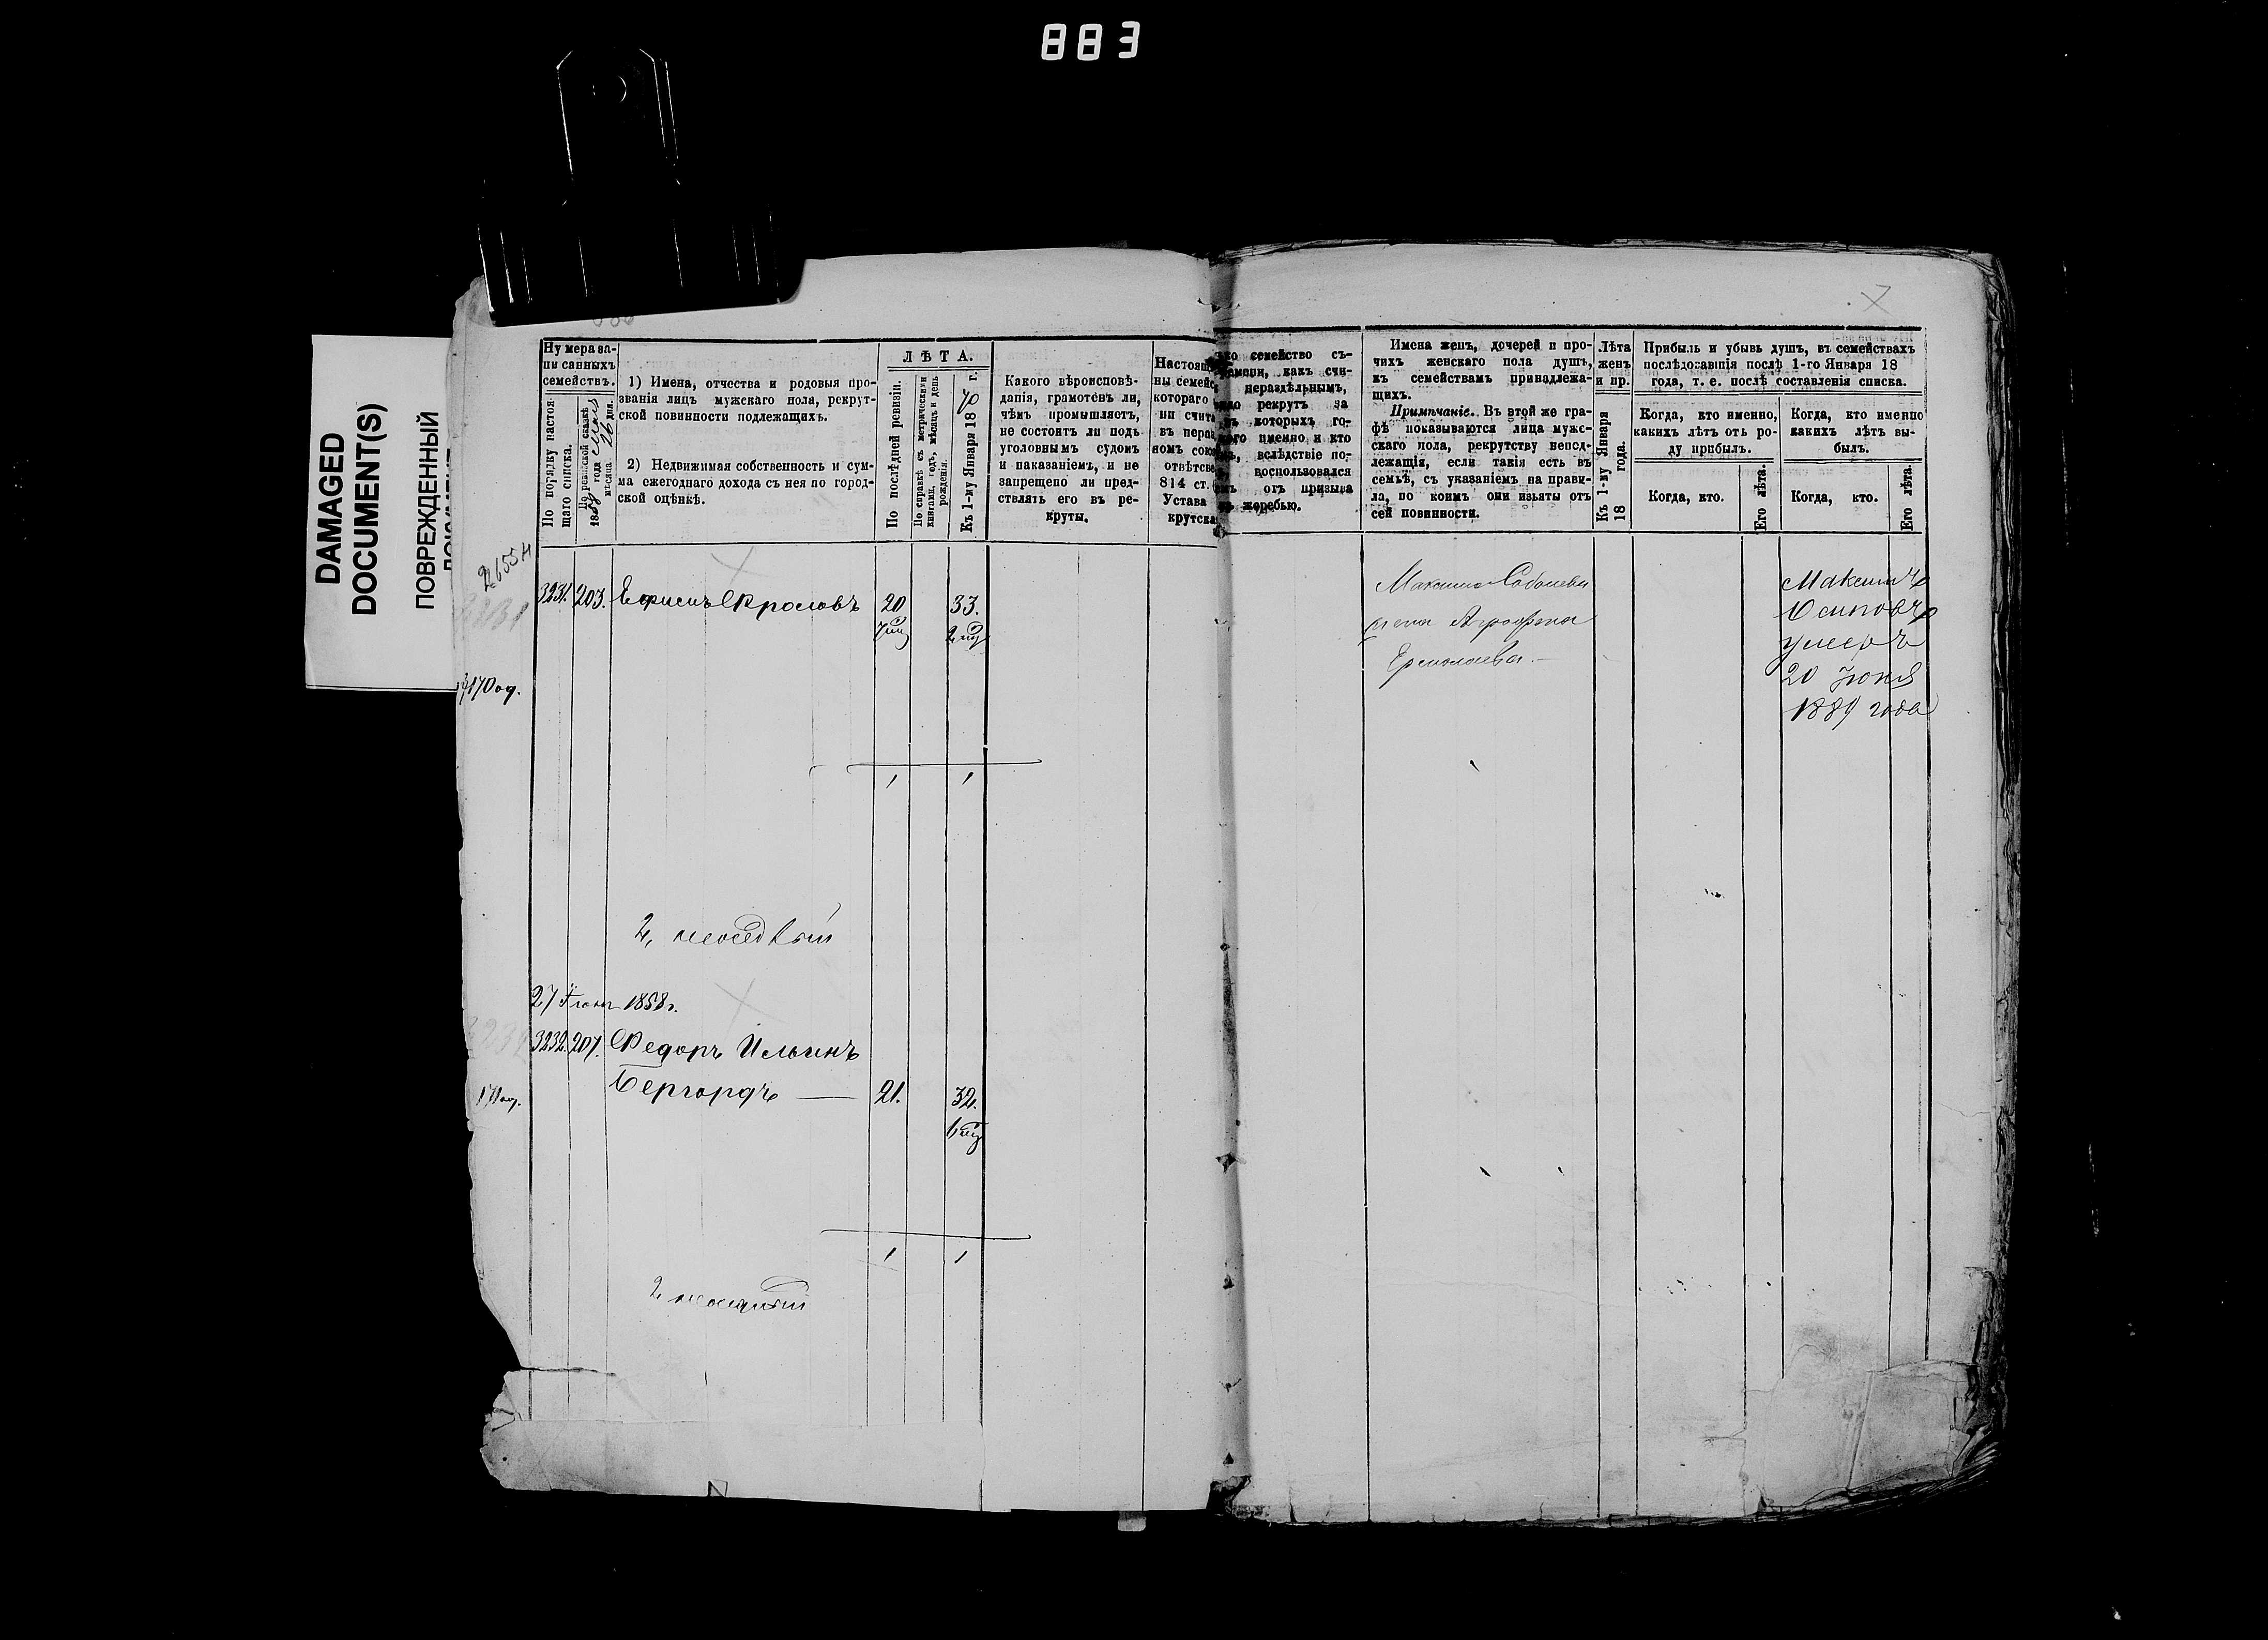 883
DAMAGED
DOCUMENT(S)
ПОВРЕЖДЕННЫЙ
Нумера за-
писанныхъ
семействъ.
По порядку настоя-
щаго списка.
По ревизской сказкѣ
1858 года
мѣсяца 26 дня.
1) Имена, отчества и родовыя про-
званія лицъ мужскаго пола, рекрут-
ской повинности подлежащихъ.
2) Недвижимая собственность и сум-
ма ежегоднаго дохода съ нея по город-
ской оцѣнкѣ.
ЛѢТА.
По послѣдней ревизіи.
По справкѣ съ метрическими
книгами, годъ, мѣсяцъ и день
рожденія.
Къ 1-му Января 1870 г.
Какого вѣроисповѣ-
данія, грамотенъ ли,
чѣмъ промышляетъ,
не состоитъ ли подъ
уголовнымъ судомъ
и наказаніемъ, и не
запрещено ли пред-
ствлять его въ ре-
круты.
Настоящ
ны семейс
котораго
ни счита
въ перва
номъ сою
отвѣтсве
814 ст.
Устава
крутска
семейство съ-
какъ счи-
нераздѣльнымъ,
рекрутъ за
которыхъ го-
именно и кто
вслѣдствіе по-
воспользовался
отъ призыва
жеребью.
Имена женъ, дочерей и про-
чихъ женскаго пола душъ,
къ семействамъ принадлежа-
щихъ.
Примѣчаніе. Въ этой же гра-
фѣ показываются лица мужс-
скаго пола, рекрутству непод-
лежащія, если такія есть въ
семьѣ, съ указаніемъ на прави-
ла, по коимъ они изъяты отъ
сей повинности.
Лѣта
женъ
и пр.
Къ 1-му Января
18 года.
Прибыль и убыль душъ, въ семействахъ
послѣдовавшія послѣ 1-го Января 18
года, т. е. послѣ составленія списка.
Когда, кто именно,
какихъ лѣтъ отъ ро-
ду прибылъ.
Когда, кто именно
какихъ лѣтъ вы-
былъ.
Когда, кто.
Его лѣта.
Когда, кто.
Его лѣта.
3231. 203. Ефимъ Фроловъ 20 33.
Максима Соболева
жена Аграфена
Ермолаева.
Максимъ
Осиповъ
умеръ
20 Іюня
1889 года
1 1
27 Іюня 1858 г.
3232. 207. Федоръ Ильинъ
21. 32.
1 1